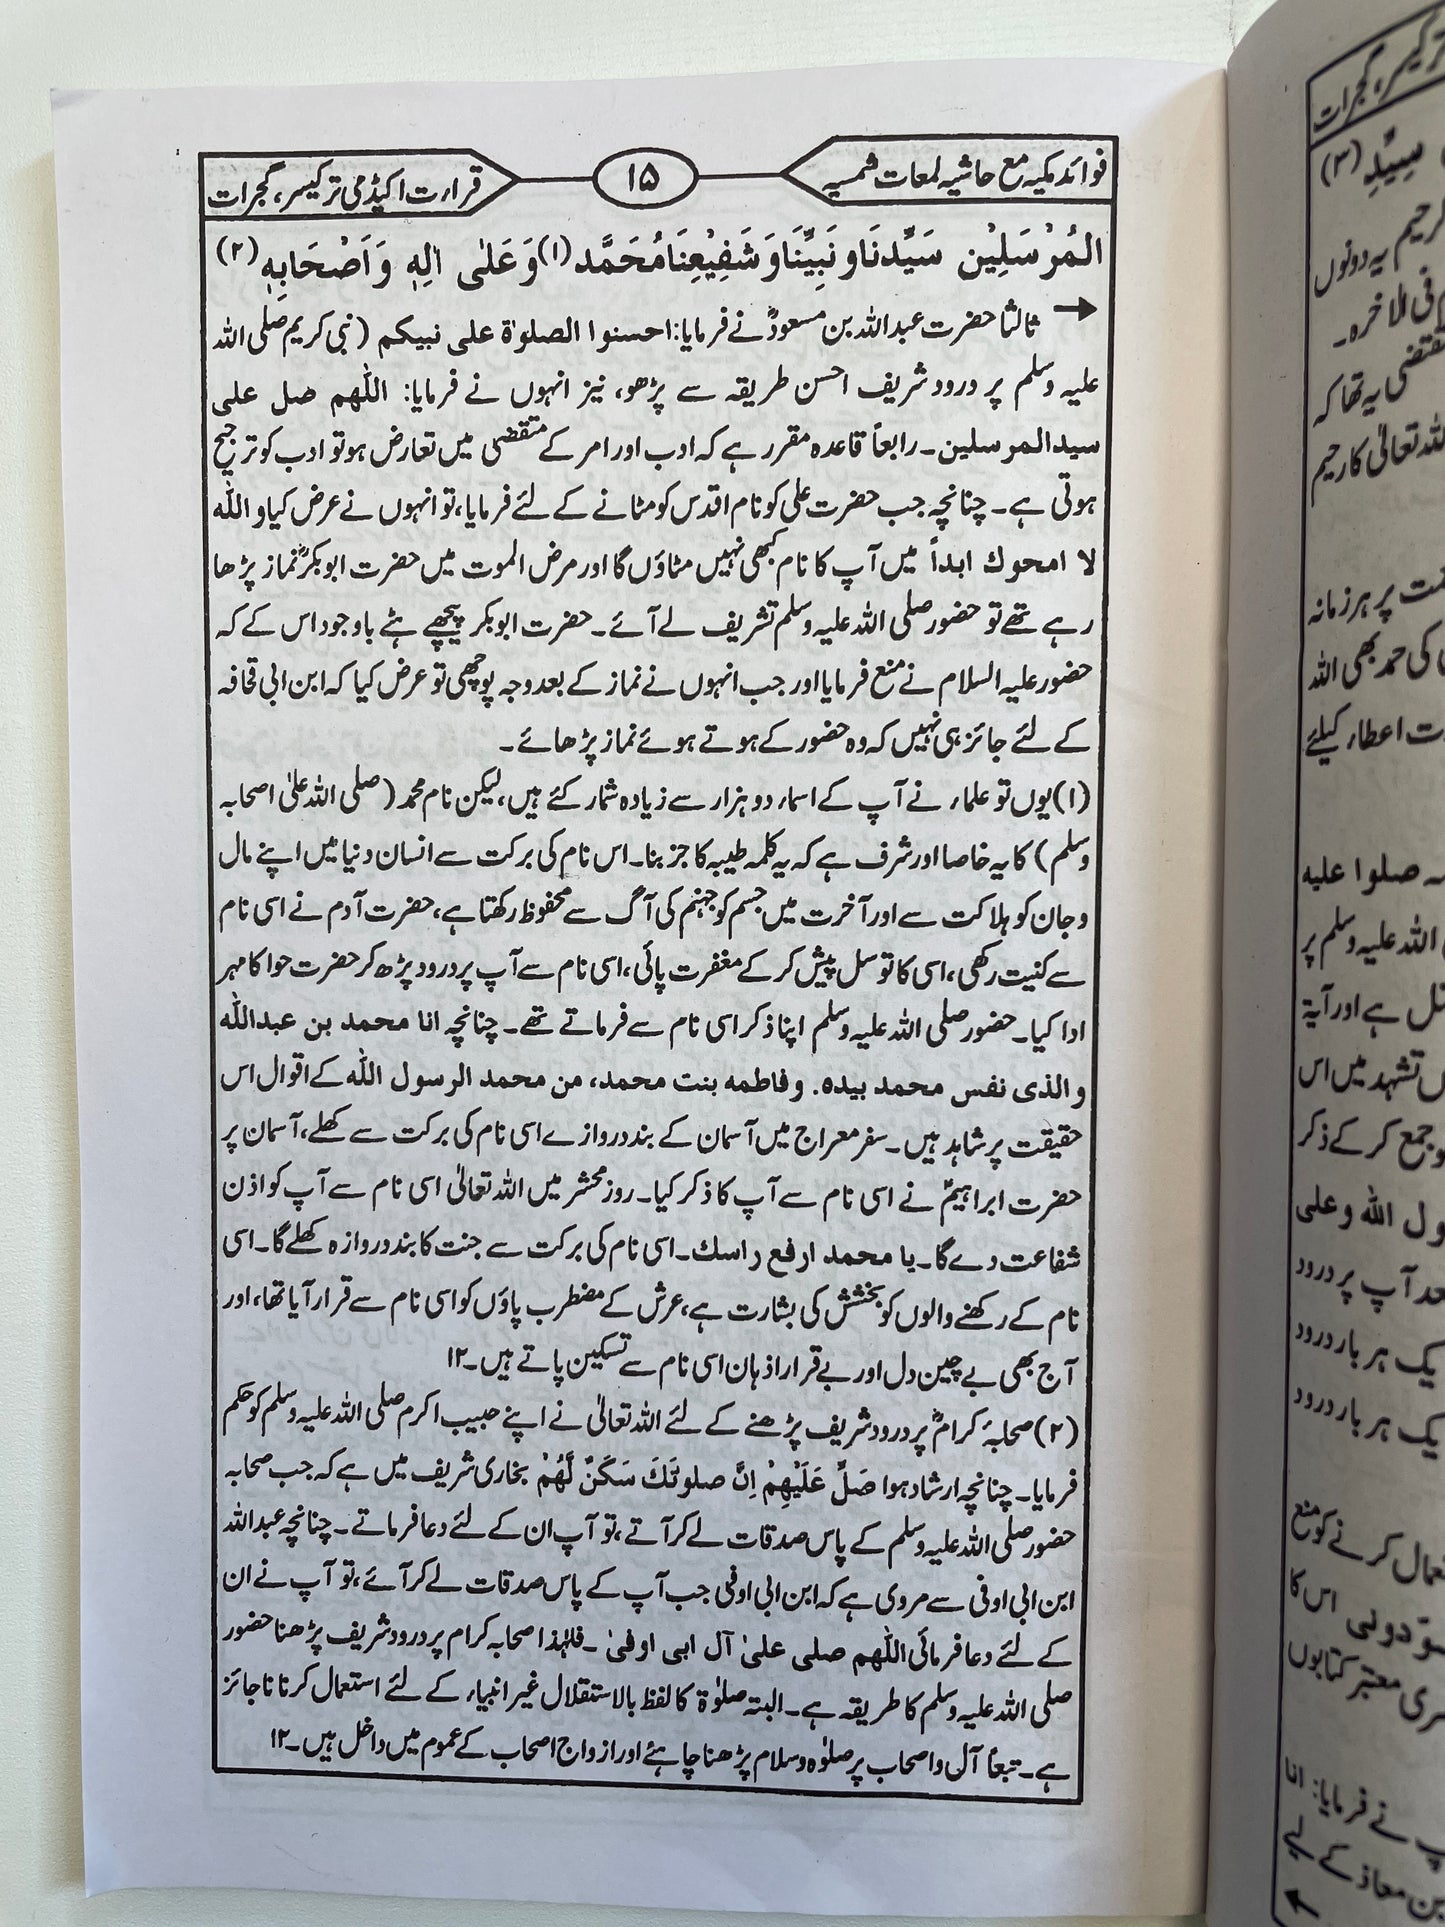 فوائد مکیہ مع حاشیہ لمعات شمسیہ
۱۵
قرارت اکیڈمی ترکیسر، گجرات
المُرْسَلِیْن سَیِّدنَا و نَبِیِّنَا وَ شَفِیْعِنَا مُحَمَّد (۱) وَ عَلیٰ اٰلِہٖ وَ اَصْحَابِہٖ (۲)
→ ثالثا حضرت عبداللہ بن مسعودؓ نے فرمایا: احسنوا الصلوٰة علی نبیکم (نبی کریم صلی اللہ
علیہ وسلم پر درود شریف احسن طریقہ سے پڑھو، نیز انہوں نے فرمایا: اللّٰھم صل علی
سید المرسلین۔ رابعاً قاعدہ مقرر ہے کہ ادب اور امر کے متقضی میں تعارض ہو تو ادب کو ترجیح
ہوتی ہے۔ چنانچہ جب حضرت علی کو نام اقدس کو مٹانے کے لئے فرمایا، تو انہوں نے عرض کیا و اللّٰہ
لا امحوك ابداً میں آپ کا نام کبھی نہیں مٹاؤں گا اور مرض الموت میں حضرت ابوبکرؓ نماز پڑھا
رہے تھے تو حضور صلی اللہ علیہ وسلم تشریف لے آئے۔ حضرت ابوبکر پیچھے ہٹے باوجود اس کے کہ
حضور علیہ السلام نے منع فرمایا اور جب انہوں نے نماز کے بعد وجہ پوچھی تو عرض کیا کہ ابن ابی قحافہ
کے لئے جائز ہی نہیں کہ وہ حضور کے ہوتے ہوئے نماز پڑھائے۔
(۱) یوں تو علماء نے آپ کے اسماء دو ہزار سے زیادہ شمار کئے ہیں، لیکن نام محمد (صلی اللہ علیٰ اصحابہ
وسلم) کا یہ خاصا اور شرف ہے کہ یہ کلمہ طیبہ کا جز بنا۔ اس نام کی برکت سے انسان دنیا میں اپنے مال
و جان کو ہلاکت سے اور آخرت میں جسم کو جہنم کی آگ سے محفوظ رکھتا ہے، حضرت آدم نے اسی نام
سے کنیت رکھی، اسی کا توسل پیش کر کے مغفرت پائی، اسی نام سے آپ پر درود پڑھ کر حضرت حوا کا مہر
ادا کیا۔ حضور صلی اللہ علیہ وسلم اپنا ذکر اسی نام سے فرماتے تھے۔ چنانچہ انا محمد بن عبداللّٰہ
و الذی نفس محمد بیدہ. و فاطمہ بنت محمد، من محمد الرسول اللّٰہ کے اقوال اس
حقیقت پر شاہد ہیں۔ سفر معراج میں آسمان کے بند دروازے اسی نام کی برکت سے کھلے، آسمان پر
حضرت ابراہیمؑ نے اسی نام سے آپ کا ذکر کیا۔ روز محشر میں اللہ تعالیٰ اسی نام سے آپ کو اذن
شفاعت دے گا۔ یا محمد ارفع راسك۔ اسی نام کی برکت سے جنت کا بند دروازہ کھلے گا۔ اسی
نام کے رکھنے والوں کو بخشش کی بشارت ہے، عرش کے مضطرب پاؤں کو اسی نام سے قرار آیا تھا، اور
آج بھی بے چین دل اور بے قرار اذہان اسی نام سے تسکین پاتے ہیں۔ ۱۲
(۲) صحابۂ کرامؓ پر درود شریف پڑھنے کے لئے اللہ تعالیٰ نے اپنے حبیب اکرم صلی اللہ علیہ وسلم کو حکم
فرمایا۔ چنانچہ ارشاد ہوا صَلِّ عَلَیْھِمْ اِنَّ صلوٰتَكَ سَكَنٌ لَّھُمْ بخاری شریف میں ہے کہ جب صحابہ
حضور صلی اللہ علیہ وسلم کے پاس صدقات لے کر آتے، تو آپ ان کے لئے دعا فرماتے۔ چنانچہ عبداللہ
ابن ابی اوفی سے مروی ہے کہ ابن ابی اوفی جب آپ کے پاس صدقات لے کر آئے، تو آپ نے ان
کے لئے دعا فرمائی اللّٰھم صلی علیٰ آل ابی اوفیٰ ۔ فلہٰذا صحابہ کرام پر درود شریف پڑھنا حضور
صلی اللہ علیہ وسلم کا طریقہ ہے۔ البتہ صلوٰۃ کا لفظ بالاستقلال غیر انبیاء کے لئے استعمال کرنا ناجائز
ہے۔ تبعاً آل و اصحاب پر صلوٰہ وسلام پڑھنا چاہئے اور ازواج اصحاب کے عموم میں داخل ہیں۔ ۱۲
ترکیسر، گجرات
سَیِّدِ (۳)
رحیم یہ دونوں
فی الآخرہ۔
مقتضی یہ تھا کہ
اللہ تعالیٰ کا رحیم
پر ہر زمانہ
کی حمد بھی اللہ
اعطاء کیلئے
صلوا علیہ
اللہ علیہ وسلم پر
ہے اور آیۃ
تشہد میں اس
جمع کر کے ذکر
اللّٰہ و علی
آپ پر درود
ایک ہر بار درود
ایک ہر بار درود
کرنے کو منع
دونی اس کا
معتبر کتابوں
نے فرمایا: انا
بن معاذ کے لیے
←